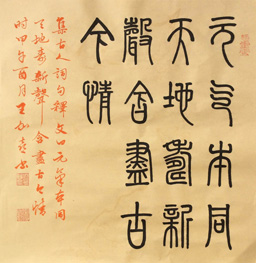 元气本同
天地寿新
声含尽古
今情
集古人词句释文曰元气本同
天地寿新声含尽古今情
时甲午酉月王